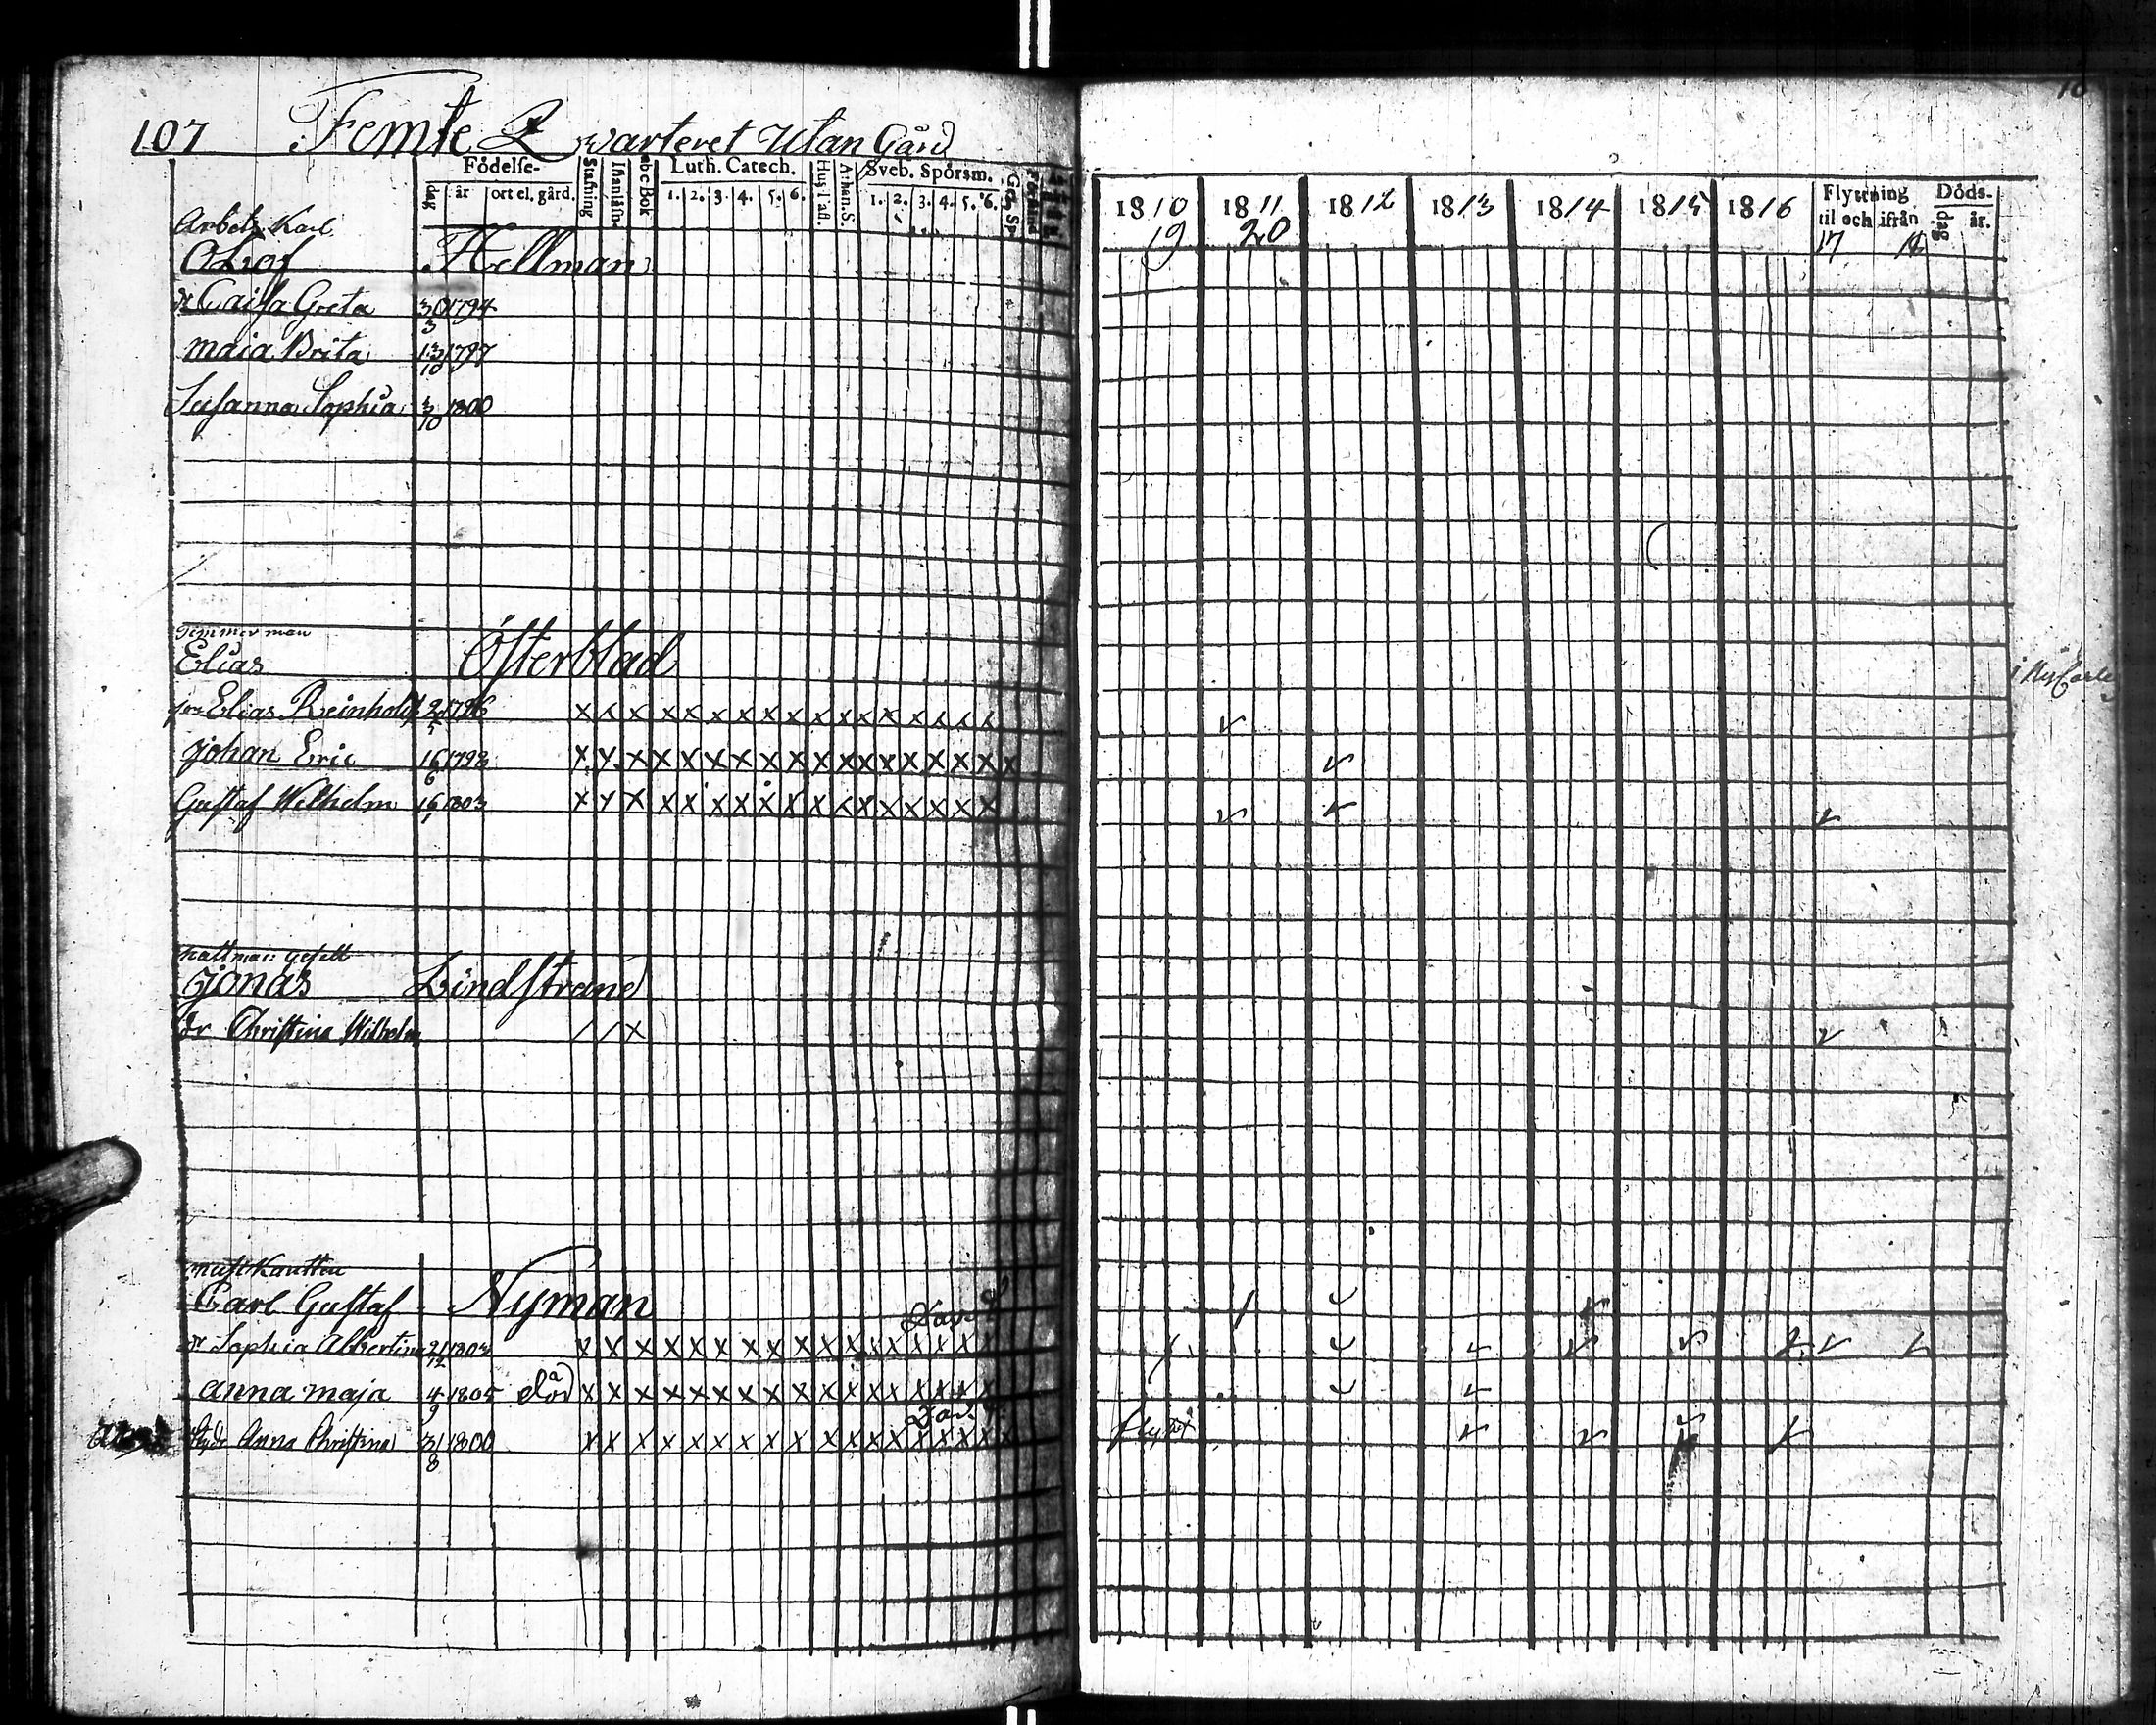 107 Femte Qwarteret Utan Gård
Födelse-
dag år ort el. gård. Stafning Abc Bok Luth. Catech. Hus Tafl. Athan. S. Sveb. Spörsm.
1. 2. 3. 4. 5. 6. 1. 2. 3. 4. 5. 6.
1810 1811 1812 1813 1814 1815 1816 Flyttning til och ifrån Döds- dag år.
19 20 17 18
Arbets Karl
Olof Hellman
dr Caisa Greta 30/3 1794
Maia Brita 13/10 1797
Susanna Sophia 3/10 1800
Timmer man
Elias Österblad
son Elias Reinhold 2/5 1786 x x x x x x x x x x x x x x x x x
Johan Eric 16/6 1798 x x x x x x x x x x x x x x x x x x
Gustaf Wilhelm 16/1 1803 x x x x x x x x x x x x x x x x x
Hattmak: Gesell
Jonas Lindstrand
dr Christina Wilhelm / / x
Musikanten
Carl Gustaf Nyman
dr Sophia Albertina 21/12 1803 x x x x x x x x x x x x x x x x x
Anna Maja 4/9 1805 död x x x x x x x x x x x x x x x x x
Anna Christina 31/8 1800 x x x x x x x x x x x x x x x x x x flyttt